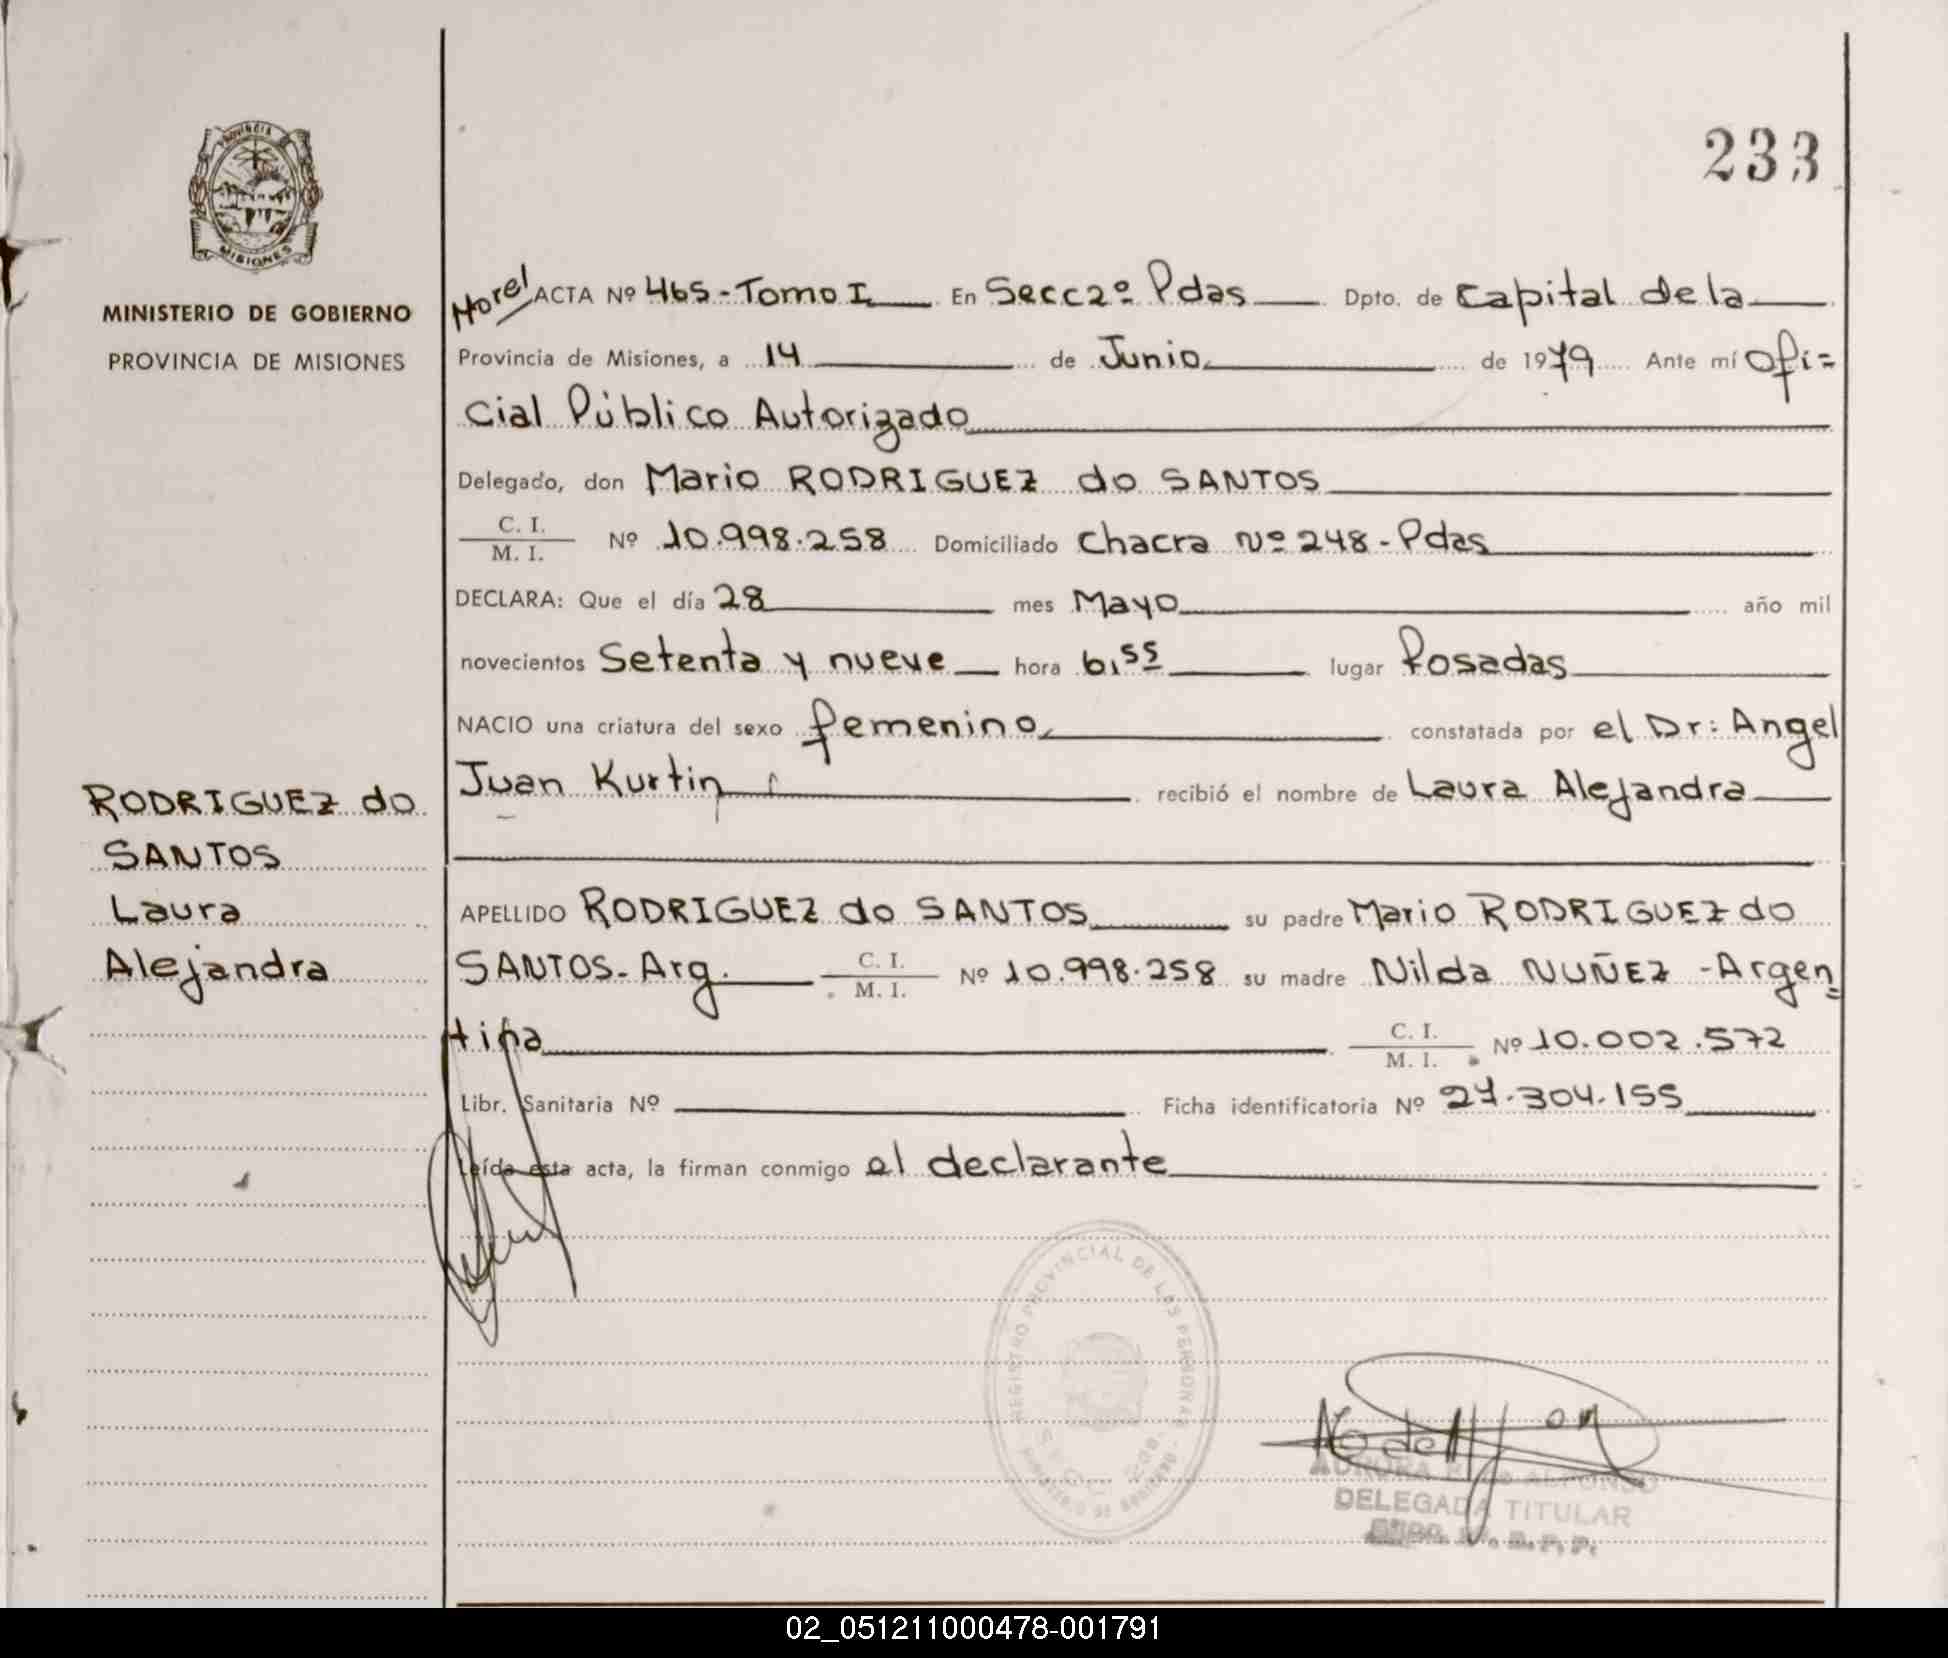 233
PROVINCIA
MISIONES
MINISTERIO DE GOBIERNO
PROVINCIA DE MISIONES
RODRIGUEZ do
SANTOS
Laura
Alejandra
Morel ACTA Nº 465-Tomo I En Secc 2º Pdas Dpto. de Capital de la
Provincia de Misiones, a 14 de Junio de 1979 Ante mí Ofi=
cial Público Autorizado
Delegado, don Mario RODRIGUEZ do SANTOS
C. I.
M. I. Nº 10.998.258 Domiciliado Chacra Nº 248-Pdas
DECLARA: Que el día 28 mes Mayo año mil
novecientos Setenta y nueve hora 6,55 lugar Posadas
NACIO una criatura del sexo femenino constatada por el Dr: Angel
Juan Kurtin recibió el nombre de Laura Alejandra
APELLIDO RODRIGUEZ do SANTOS su padre Mario RODRIGUEZ do
SANTOS-Arg. C. I. M. I. Nº 10.998.258 su madre Nilda NUÑEZ -Argen=
tina C. I. M. I. Nº 10.002.572
Libr. Sanitaria Nº Ficha identificatoria Nº 27.304.155
Leída esta acta, la firman conmigo el declarante
REGISTRO PROVINCIAL DE LAS PERSONAS
MINISTERIO DE GOBIERNO
AURORA de ALFONSO
DELEGADA TITULAR
02_051211000478-001791